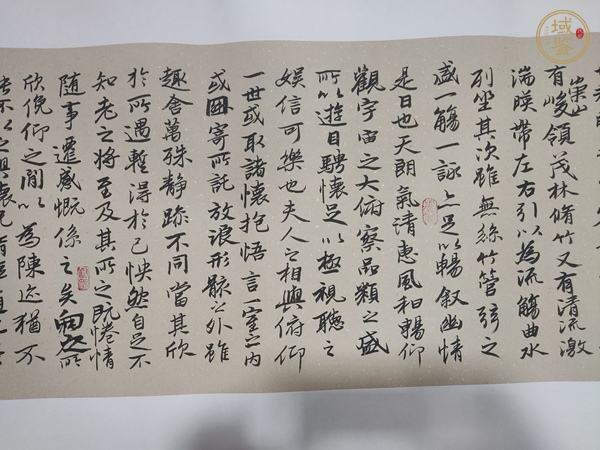 有崇山峻領茂林脩竹又有清流激
湍暎帶左右引以為流觴曲水
列坐其次雖無絲竹管弦之
盛一觴一詠亦足以暢叙幽情
是日也天朗氣清惠風和暢仰
觀宇宙之大俯察品類之盛
所以遊目騁懷足以極視聽之
娛信可樂也夫人之相與俯仰
一世或取諸懷抱悟言一室之內
或因寄所託放浪形骸之外雖
趣舍萬殊靜躁不同當其欣
於所遇蹔得於己怏然自足不
知老之將至及其所之既惓情
隨事遷感慨係之矣向之所
欣俛仰之閒以為陳迹猶不
域鉴